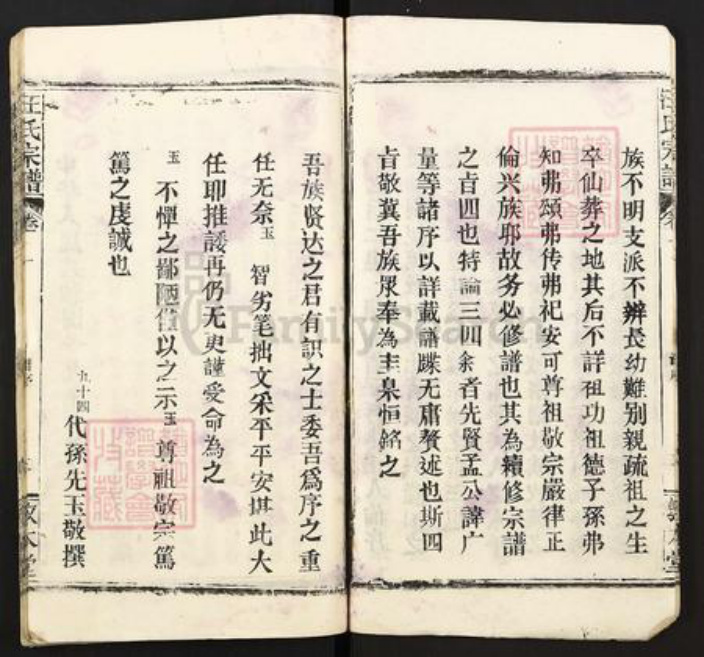 族不明支派不辨長幼難别親疏祖之生
卒仙葬之地其后不詳祖功祖德子孫弗
知弗頌弗传弗祀安可尊祖敬宗嚴律正
倫兴族耶故务必修譜也其為續修宗譜
之㫖四也特論三四余者先賢孟公諱广
量等諸序以詳載譜牒无庸赘述也斯四
㫖敬冀吾族眾奉為圭臬恒銘之
吾族贤达之君有識之士委吾爲序之重
任无奈玉智劣笔拙文采平平安堪此大
任耶推諼再仍无更謹受命為之
玉不憚之鄙陋僅以之示玉尊祖敬宗篤
篤之虔誠也
九十四代孫先玉敬撰
汪氏宗譜
卷一
汪氏宗譜
卷一
敦本堂
FamilySearch